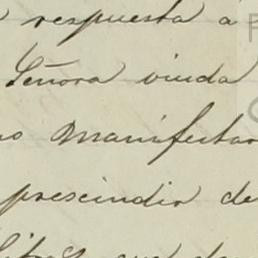 respuesta á
Señora viuda
manifestar
prescindir de